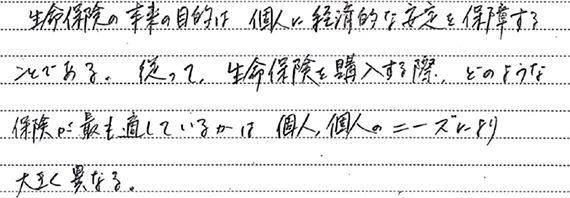 生命保険の事業の目的は 個人に経済的な安定を保障する
ことである。従って、生命保険を購入する際、どのような
保険が最も適しているかは 個人,個人のニーズにより
大きく異なる。